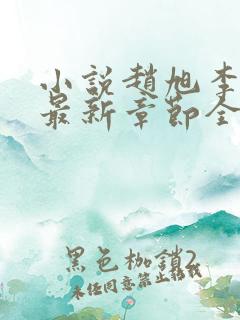 小說趙旭李
最新章節全
黑色枷鎖2
未经同意禁止转载